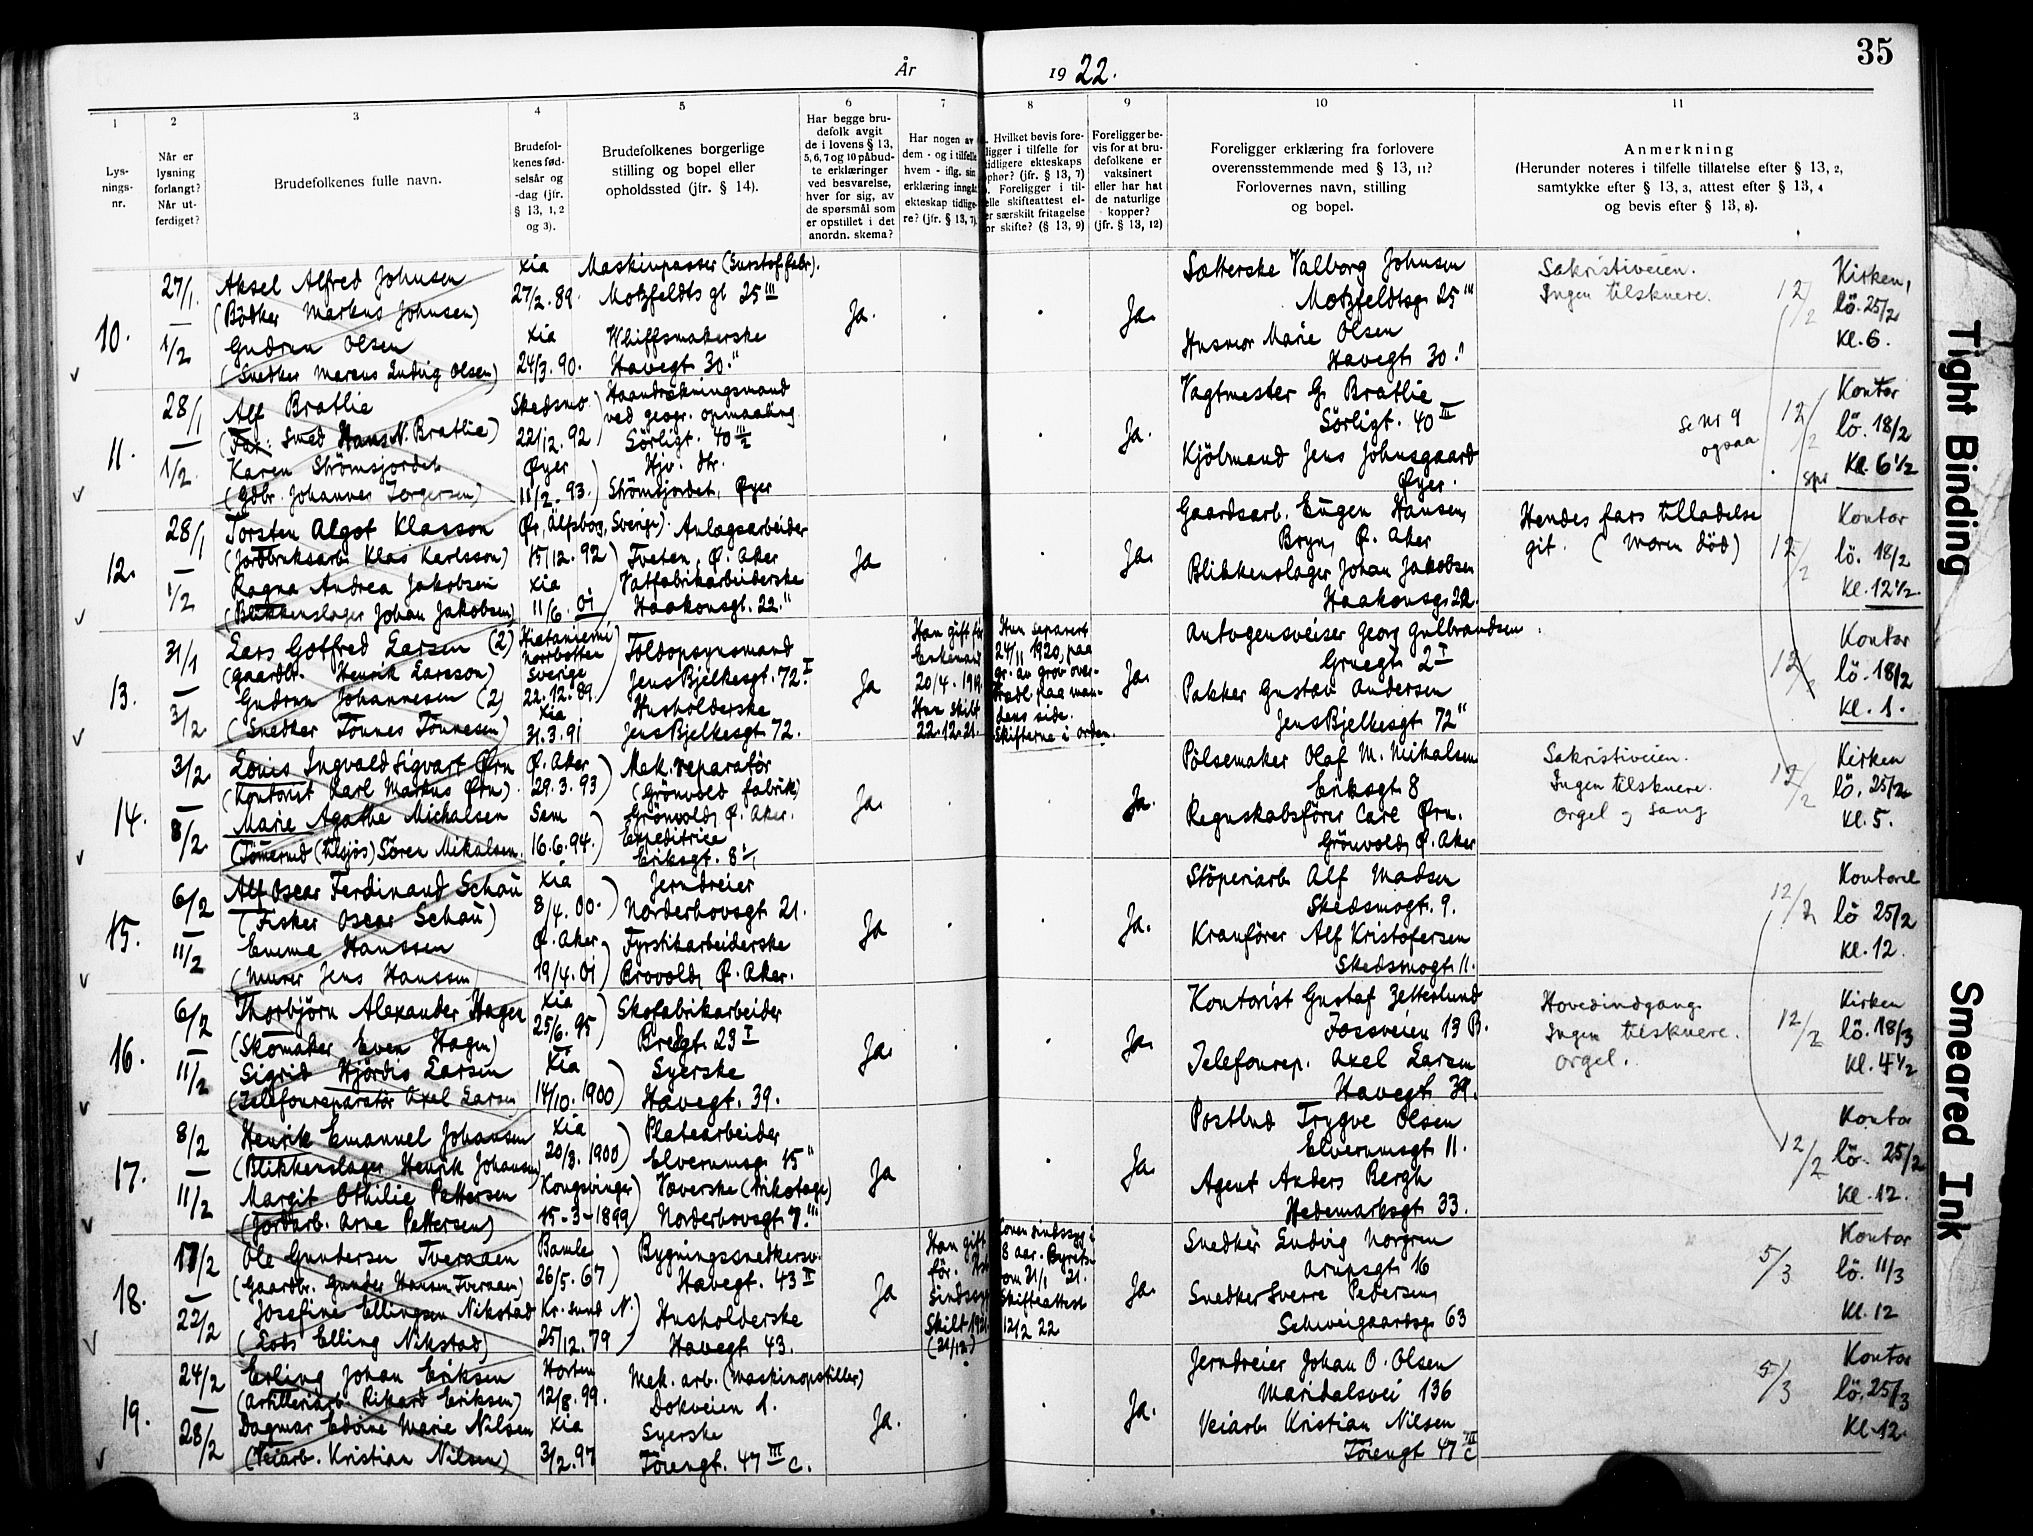 35
År 1922.
1 2 3 4 5 6 7 8 9 10 11
Lys-
nings-
nr.
Når er
lysning
forlangt?
Når ut-
ferdiget?
Brudefolkenes fulle navn.
Brudefol-
kenes fød-
selsår og
-dag (jfr.
§ 13, 1, 2
og 3).
Brudefolkenes borgerlige
stilling og bopel eller
opholdssted (jfr. § 14).
Har begge bru-
defolk avgit
de i lovens § 13,
5, 6, 7 og 10 påbud-
te erklæringer
ved besvarelse,
hver for sig, av
de spørsmål som
er opstillet i det
anordn. skema?
Har nogen av
dem - og i tilfelle
hvem - iflg. sin
erklæring inngåt
ekteskap tidlige-
re? (jfr. § 13, 7).
Hvilket bevis fore-
ligger i tilfelle for
tidligere ekteskaps
ophør? (jfr. § 13, 7)
Foreligger i til-
felle skifteattest el-
ler særskilt fritagelse
for skifte? (§ 13, 9)
Foreligger be-
vis for at bru-
defolkene er
vaksinert
eller har hat
de naturlige
kopper?
(jfr. § 13, 12)
Foreligger erklæring fra forlovere
overensstemmende med § 13, 11?
Forlovernes navn, stilling
og bopel.
Anmerkning
(Herunder noteres i tilfelle tillatelse efter § 13, 2,
samtykke efter § 13, 3, attest efter § 13, 4
og bevis efter § 13, 8).
10.
27/1
1/2
Aksel Alfred Johnsen
(Bödker Markus Johnsen)
Gudrun Olsen
(Snedker Marens Ludvig Olsen)
Xia
27/2. 89.
Xia
24/3. 90.
Maskinpasser (Surstof fabr).
Motzfeldts gt 25 III
Whiffsmakerske
Havegt. 30."
Ja.
Ja.
Sætterske Valborg Johnsen
Motzfeldtsg. 25 III
Husmor Marie Olsen
Havegt. 30."
Sakristiveien.
Ingen tilskuere.
12/2
Kirken,
lö. 25/2
Kl. 6.
11.
28/1
1/2
Alf Bratlie
(Far: Smed Hans N. Bratlie)
Karen Strömsjordet
(Gdbr. Johannes Torgersen)
Skedsmo
22/12. 92
Øyer
11/2. 93.
Haandrækningsmand
ved geogr. opmaaling
Sörligt. 40 III
Hjv. dtr.
Strömsjordet, Øyer
Ja.
Vagtmester G. Bratlie
Sörligt. 40 III
Kjölmand Jens Johnsgaard
Øyer.
se nr 9
ogsaa
12/2
spr
Kontor
lö. 18/2
Kl. 6 1/2
12.
28/1
1/2
Torsten Algot Klasson
(Jordbruksarb. Klas Karlsson)
Ragna Andrea Jakobsen
(Blikkenslager Johan Jakobsen)
Ör, Älfsborg, Sverige)
15/12. 92
Xia
11/6. 01
Anlægsarbeider
Tveten, Ø. Aker
Vatfabrikarbeiderske
Haakonsgt. 22."
Ja
Ja.
Gaardsarb. Eugen Hansen,
Bryn, Ø. Aker
Blikkenslager Johan Jakobsen
Haakonsg. 22.
Hendes fars tilladelse
git. (moren död)
12/2
Kontor
lö. 18/2
Kl. 12 1/2.
13.
31/1
3/2
Lars Gotfred Larsen (2)
(gaardbr. Henrik Larsson)
Gudrun Johannesen (2)
(Snedker Tönnes Tönnesen)
Hietaniemi
Norrbotten
Sverige
22.12.89.
Xia
31.3.91
Toldopsynsmand
Jens Bjelkesgt. 72. I
Husholderske
Jens Bjelkesgt. 72.
Ja
Han gift för
Enkemand
20/4. 1919.
Hun skilt
22.12.21.
Hun separert
24/11 1920, paa
gr. av grov over-
tradl. paa man-
dens side.
Skifterne i orden.
Ja.
Autogensveiser Georg Gulbrandsen.
Gruegt. 2 I
Pakker Gustav Andersen
Jens Bjelkesgt. 72"
12/2
Kontor
lö. 18/2
Kl. 1.
14.
3/2
8/2
Louis Ingvald Sigvart Ørn
(Kontorist Karl Markus Ørn)
Marie Agathe Michalsen
(Tömmermd (tilsjøs) Sören Mikalsen.
Ø. Aker
29.3.93)
Sem
16.6.94.)
Mek. reparatör
(Grönvold fabrik)
Grönvold, Ø. Aker.
Expeditrice
Eriksgt. 8 I
Ja.
Ja.
Pölsemaker Olaf M. Mikalsen
Eriksgt. 8
Regnskabsförer Carl Ørn.
Grönvold, Ø. Aker
Sakristiveien.
Ingen tilskuere.
Orgel og Sang
12/2
Kirken
lö. 25/2
Kl. 5.
15.
6/2
11/2
Alf Oscar Ferdinand Schau
(Fisker Oscar Schau)
Emma Hanssen
(Murer Jens Hanssen)
Xia
8/4. 00.
Ø. Aker
19/4. 01
Jerndreier
Norderhovsgt. 21.
Fyrstikarbeiderske
Brovold, Ø. Aker.
Ja
Ja.
Stöperiarb. Alf Madsen
Skedsmogt. 9.
Kranförer Alf Kristofersen
Skedsmogt. 11.
12/2
Kontoret
lö 25/2
Kl. 12.
16.
6/2
11/2
Thorbjörn Alexander Hagen
(Skomaker Even Hagen)
Sigrid Hjördis Larsen
(Telefonreparatør Axel Larsen
Xia
25/6. 95
Xia
14/10. 1900)
Skofabrikarbeider
Bredgt. 23 I
Syerske
Havegt. 39.
Ja.
Ja.
Kontorist Gustaf Zetterlund
Fossveien 13 B.
Telefonrep. Axel Larsen
Havegt. 39.
Hovedindgang.
Ingen tilskuere.
Orgel.
12/2
Kirken
lö. 18/3
Kl. 4 1/2
17.
8/2
11/2
Henrik Emanuel Johansen
(Blikkenslager Henrik Johansen)
Margit Othilie Pettersen
(Jordarb. Arne Pettersen)
Xia
20/3. 1900)
Kongsvinger)
15-3-1899)
Platearbeider
Elverumsg. 15"
Væverske (trikotage)
Norderhovsgt. 7."
Ja
Ja.
Postbud Trygve Olsen
Elverumsgt. 11.
Agent Anders Bergh
Hedemarksgt. 33.
12/2
Kontor
lö. 25/2
Kl. 12.
18.
17/2
22/2
Ole Gundersen Tveraaen
(Gaardbr. Gunder Hansen Tveraaen)
Josefine Ellingsen Nikstad
(Lods Elling Nikstad)
Bamle
26/5. 67
Kr. sund N.
25/12. 79
Bygningssnedkersv.
Havegt. 43 II
Husholderske
Havegt. 43.
Ja
Han gift
för.
Sindssyg
Skilt 1921
(21/12)
Konen sindssyg i
8 aar. Byretsd
om 21/1 21.
Skifteattest
12/2 22
Ja.
Snedker Ludvig Norgren
Arupsgt. 16
Snedker Sverre Pedersen,
Schweigaardsg. 63
5/3
Kontor
lö. 11/3
Kl. 12
19.
24/2
28/2
Erling Johan Eriksen
(Artilleriarb. Rikard Eriksen)
Dagmar Edvine Marie Nilsen
(Veiarb. Kristian Nilsen)
Horten
12/8. 99.
Xia
3/2. 97
Mek. arb. (maskinopstiller)
Dokveien 1.
Syerske
Töiengt. 47 III c.
Ja.
Ja.
Jerndreier Johan O. Olsen
Maridalsvei 136
Veiarb. Kristian Nilsen
Töiengt. 47 III c
5/3
Kontor
lö. 25/3
Kl. 12.
Tight Binding
Smeared Ink